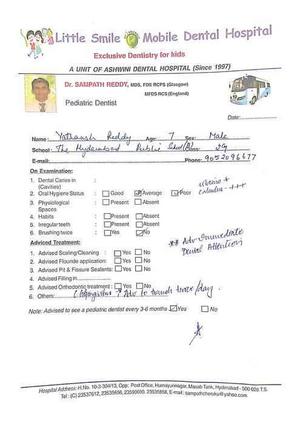 Little Smile Mobile Dental Hospital
Exclusive Dentistry for kids
A UNIT OF ASHWINI DENTAL HOSPITAL (Since 1997)
Dr. SAMPATH REDDY, MDS, FDS RCPS (Glasgow)
MFDS RCS (England)
Pediatric Dentist
Name: Reddy Age: 7 Sex: Male
School: The Hyderabad Public School Class:
E-mail: Phone: 9052096677
On Examination:
1. Dental Caries in :
(Cavities)
2. Oral Hygiene Status : Good Average Poor
3. Physiological : Present Absent
Spaces
4. Habits : Present Absent
5. Irregular teeth : Present Absent
6. Brushing twice : Yes No
calculus - +++
** Adv Immediate
Dental Attention
Adviced Treatment:
1. Advised Scaling/Cleaning : Yes No
2. Advised Fluoride application: Yes No
3. Advised Pit & Fissure Sealants: Yes No
4. Advised Filling in
5. Advised Orthodontic treatment : Yes No
6. Others: Adv to brush twice/day.
Note: Advised to see a pediatric dentist every 3-6 months Yes No
Hospital Address: H.No. 10-3-304/13, Opp: Post Office, Humayunnagar, Masab Tank, Hyderabad - 500 028 T.S.
Tel: (C) 23537612, 23535656, email: sampathcheruku@yahoo.com